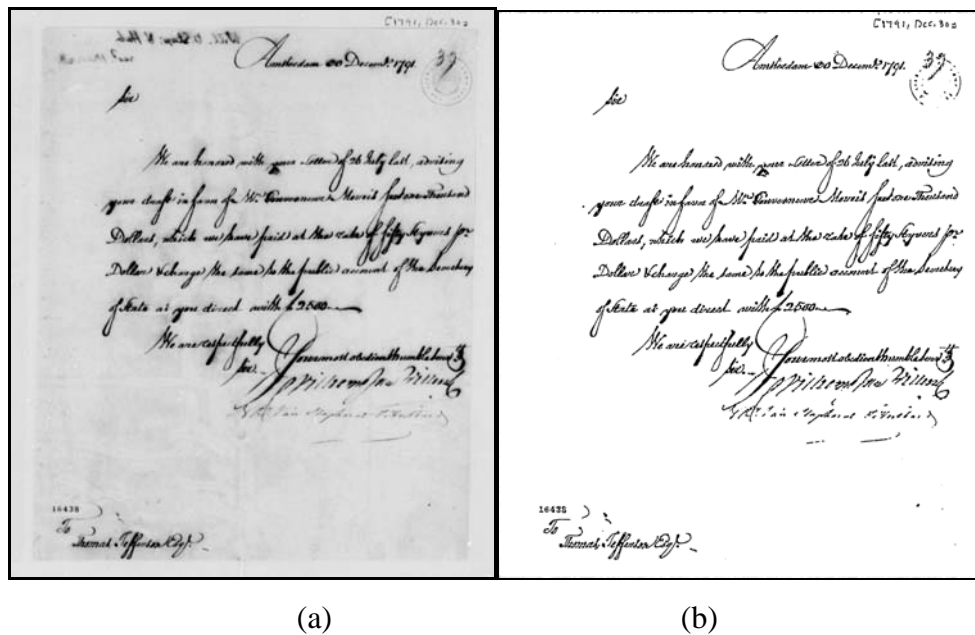 [1791, Dec. 30]
Amsterdam 30 Decemb. 1791.
39
Sir
We are honored with your Letter of 26 July last, advising
your draft in favor of Mr. Gouverneur Morris for one Thousand
Dollars, which we have paid at the rate of fifty Stuyvers per
Dollar & charge the same to the public account of the Secretary
of State as you direct with f 2500
We are respectfully
Sir
Your most obedient humble
16438
To
Thomas Jefferson Esqr.
[1791, Dec. 30]
Amsterdam 30 Decemb. 1791.
39
Sir
We are honored with your Letter of 26 July last, advising
your draft in favor of Mr. Gouverneur Morris for one Thousand
Dollars, which we have paid at the rate of fifty Stuyvers per
Dollar & charge the same to the public account of the Secretary
of State as you direct with f 2500
We are respectfully
Sir
Your most obedient humble
16438
To
Thomas Jefferson Esqr.
(a)
(b)